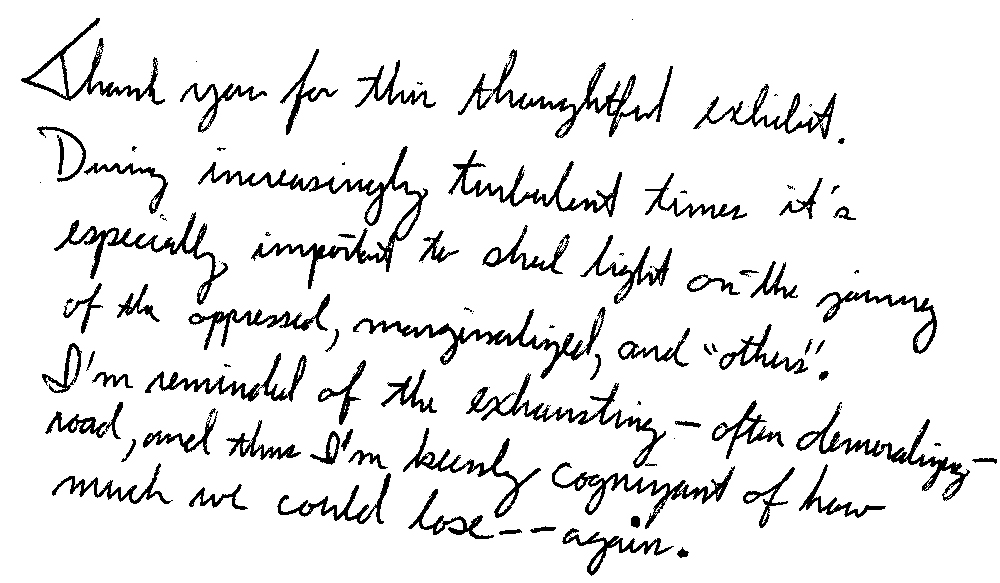 Thank you for this thoughtful exhibit.
During increasingly turbulent times it's
especially important to shed light on the journey
of the oppressed, marginalized, and "others".
I'm reminded of the exhausting - often demoralizing -
road, and thus I'm keenly cognizant of how
much we could lose -- again.